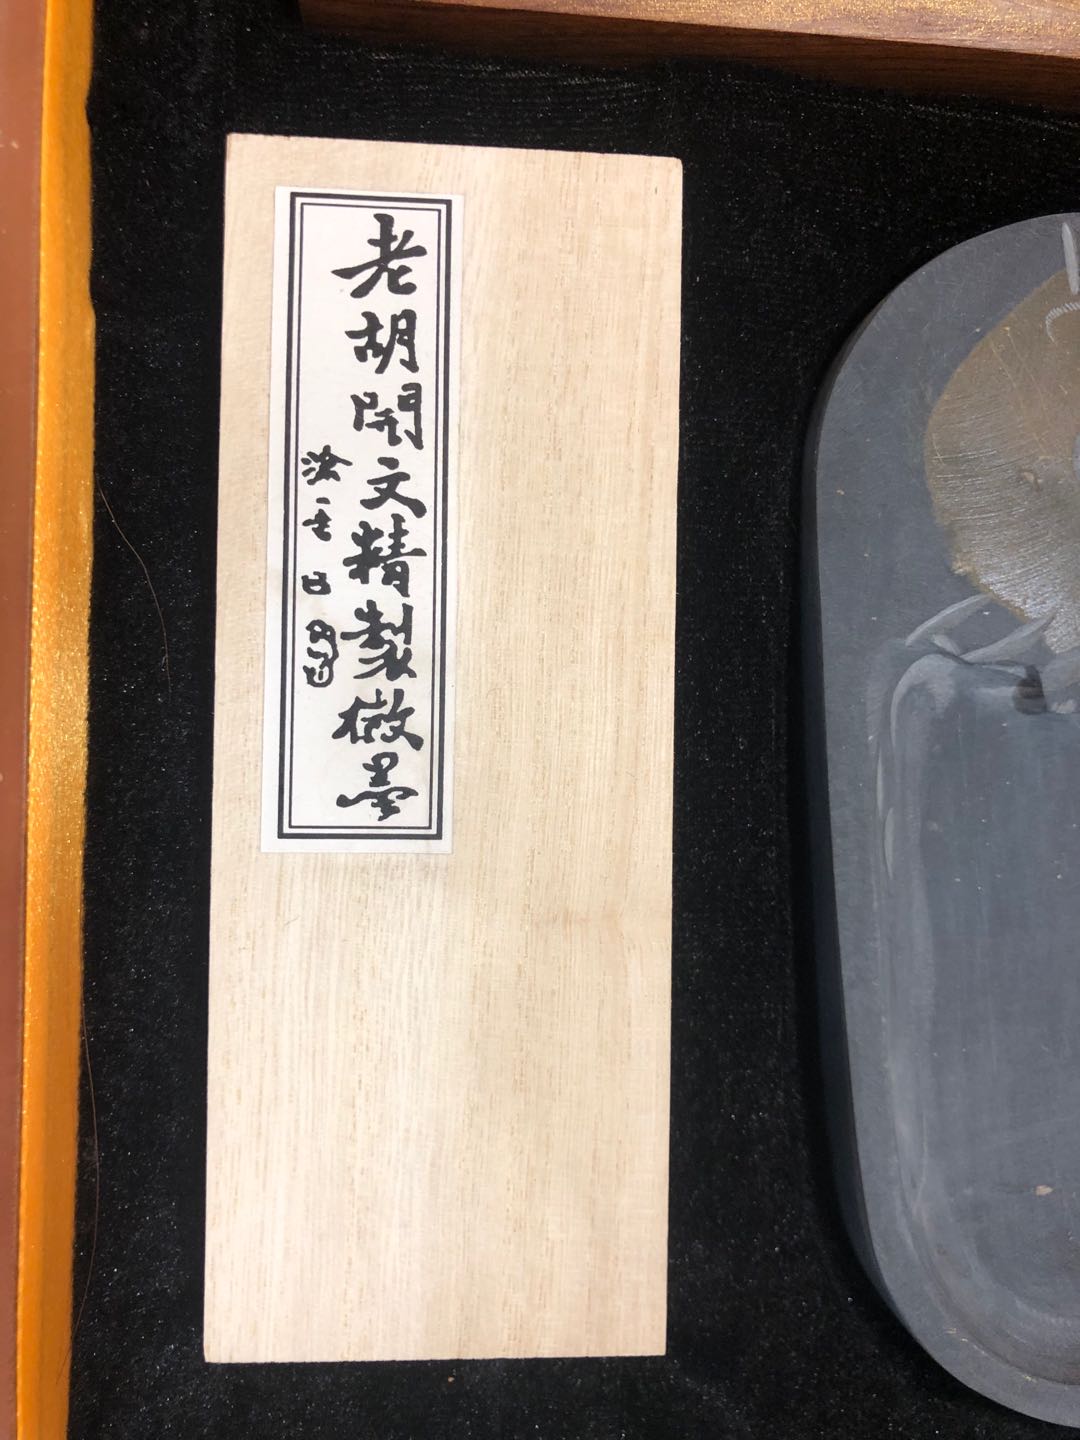 老胡開文精製徽墨